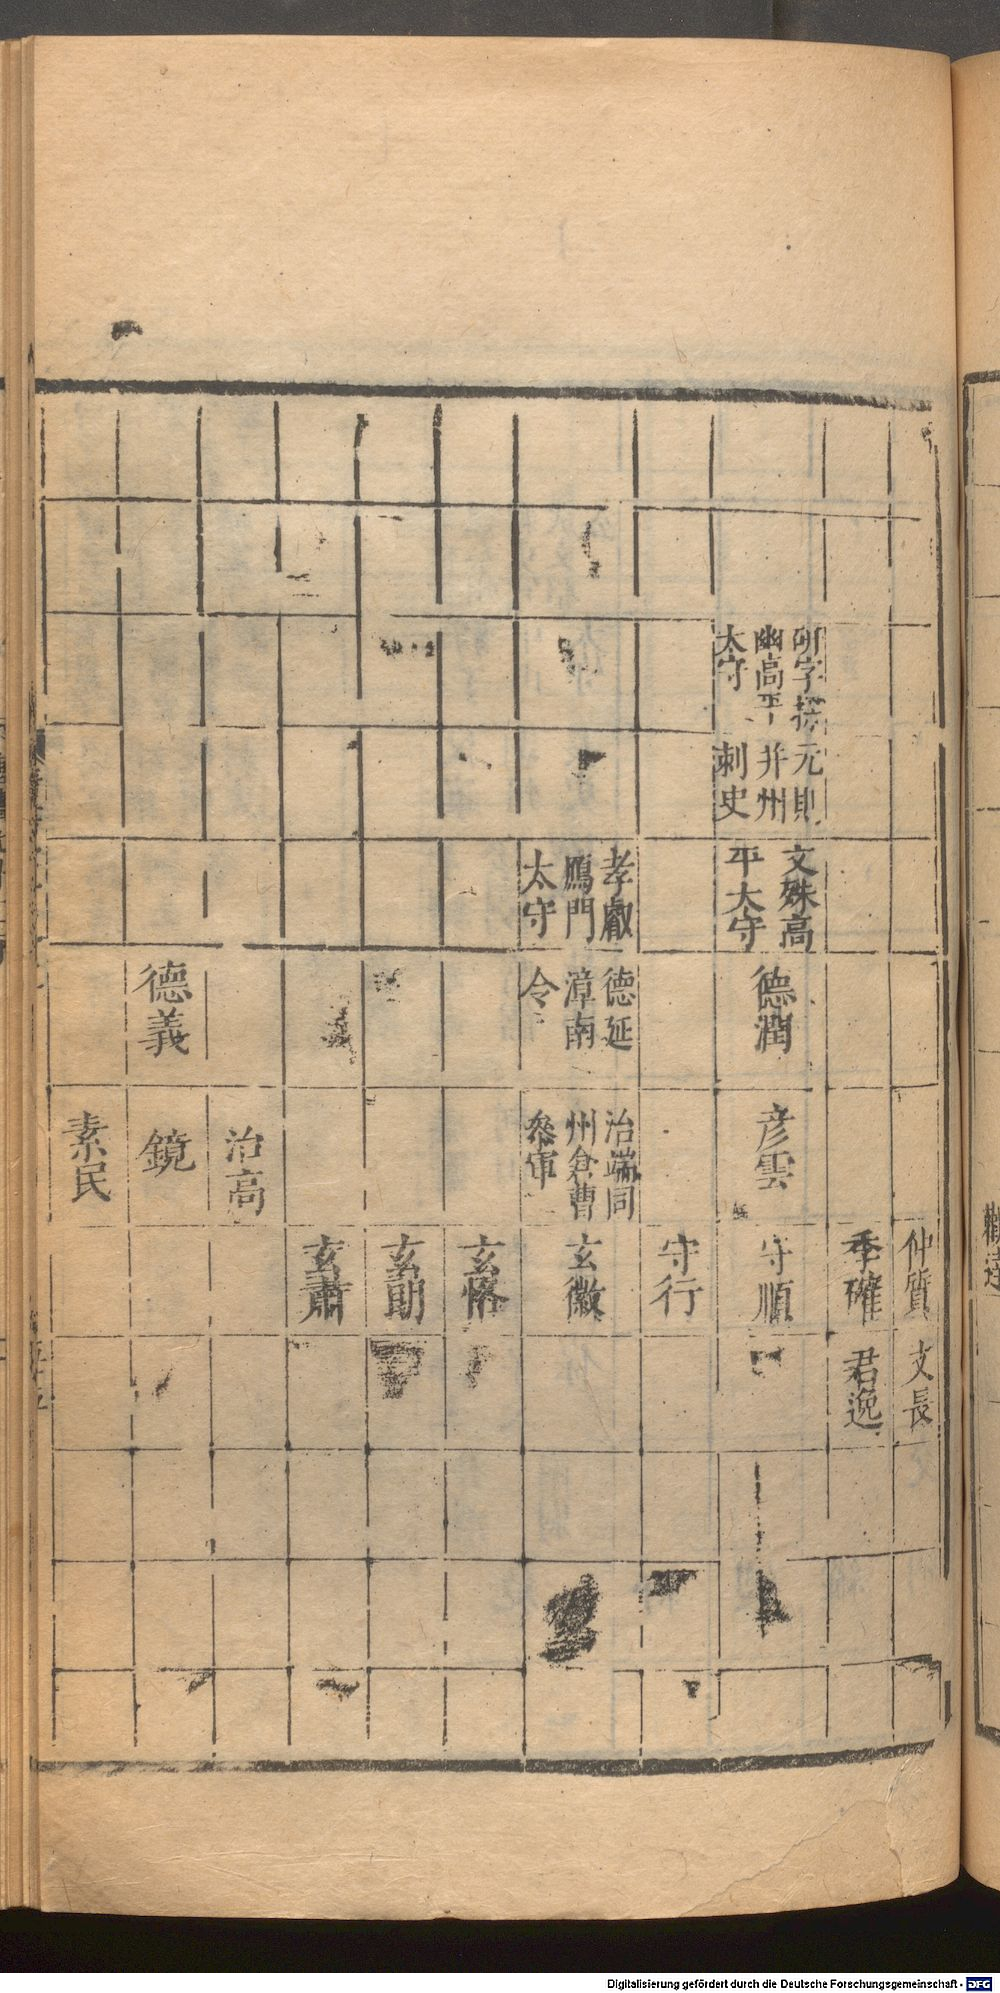 仲質
文長
季確
君逸
研字探
幽高平
太守
元則
并州
刺史
文殊高
平太守
德潤
彥雲
守順
守行
孝叡
鴈門
太守
德延
漳南
令
治端同
州倉曹
叅軍
玄徽
玄恪
玄助
玄肅
治高
德義
鏡
素民
Digitalisierung gefördert durch die Deutsche Forschungsgemeinschaft - DFG